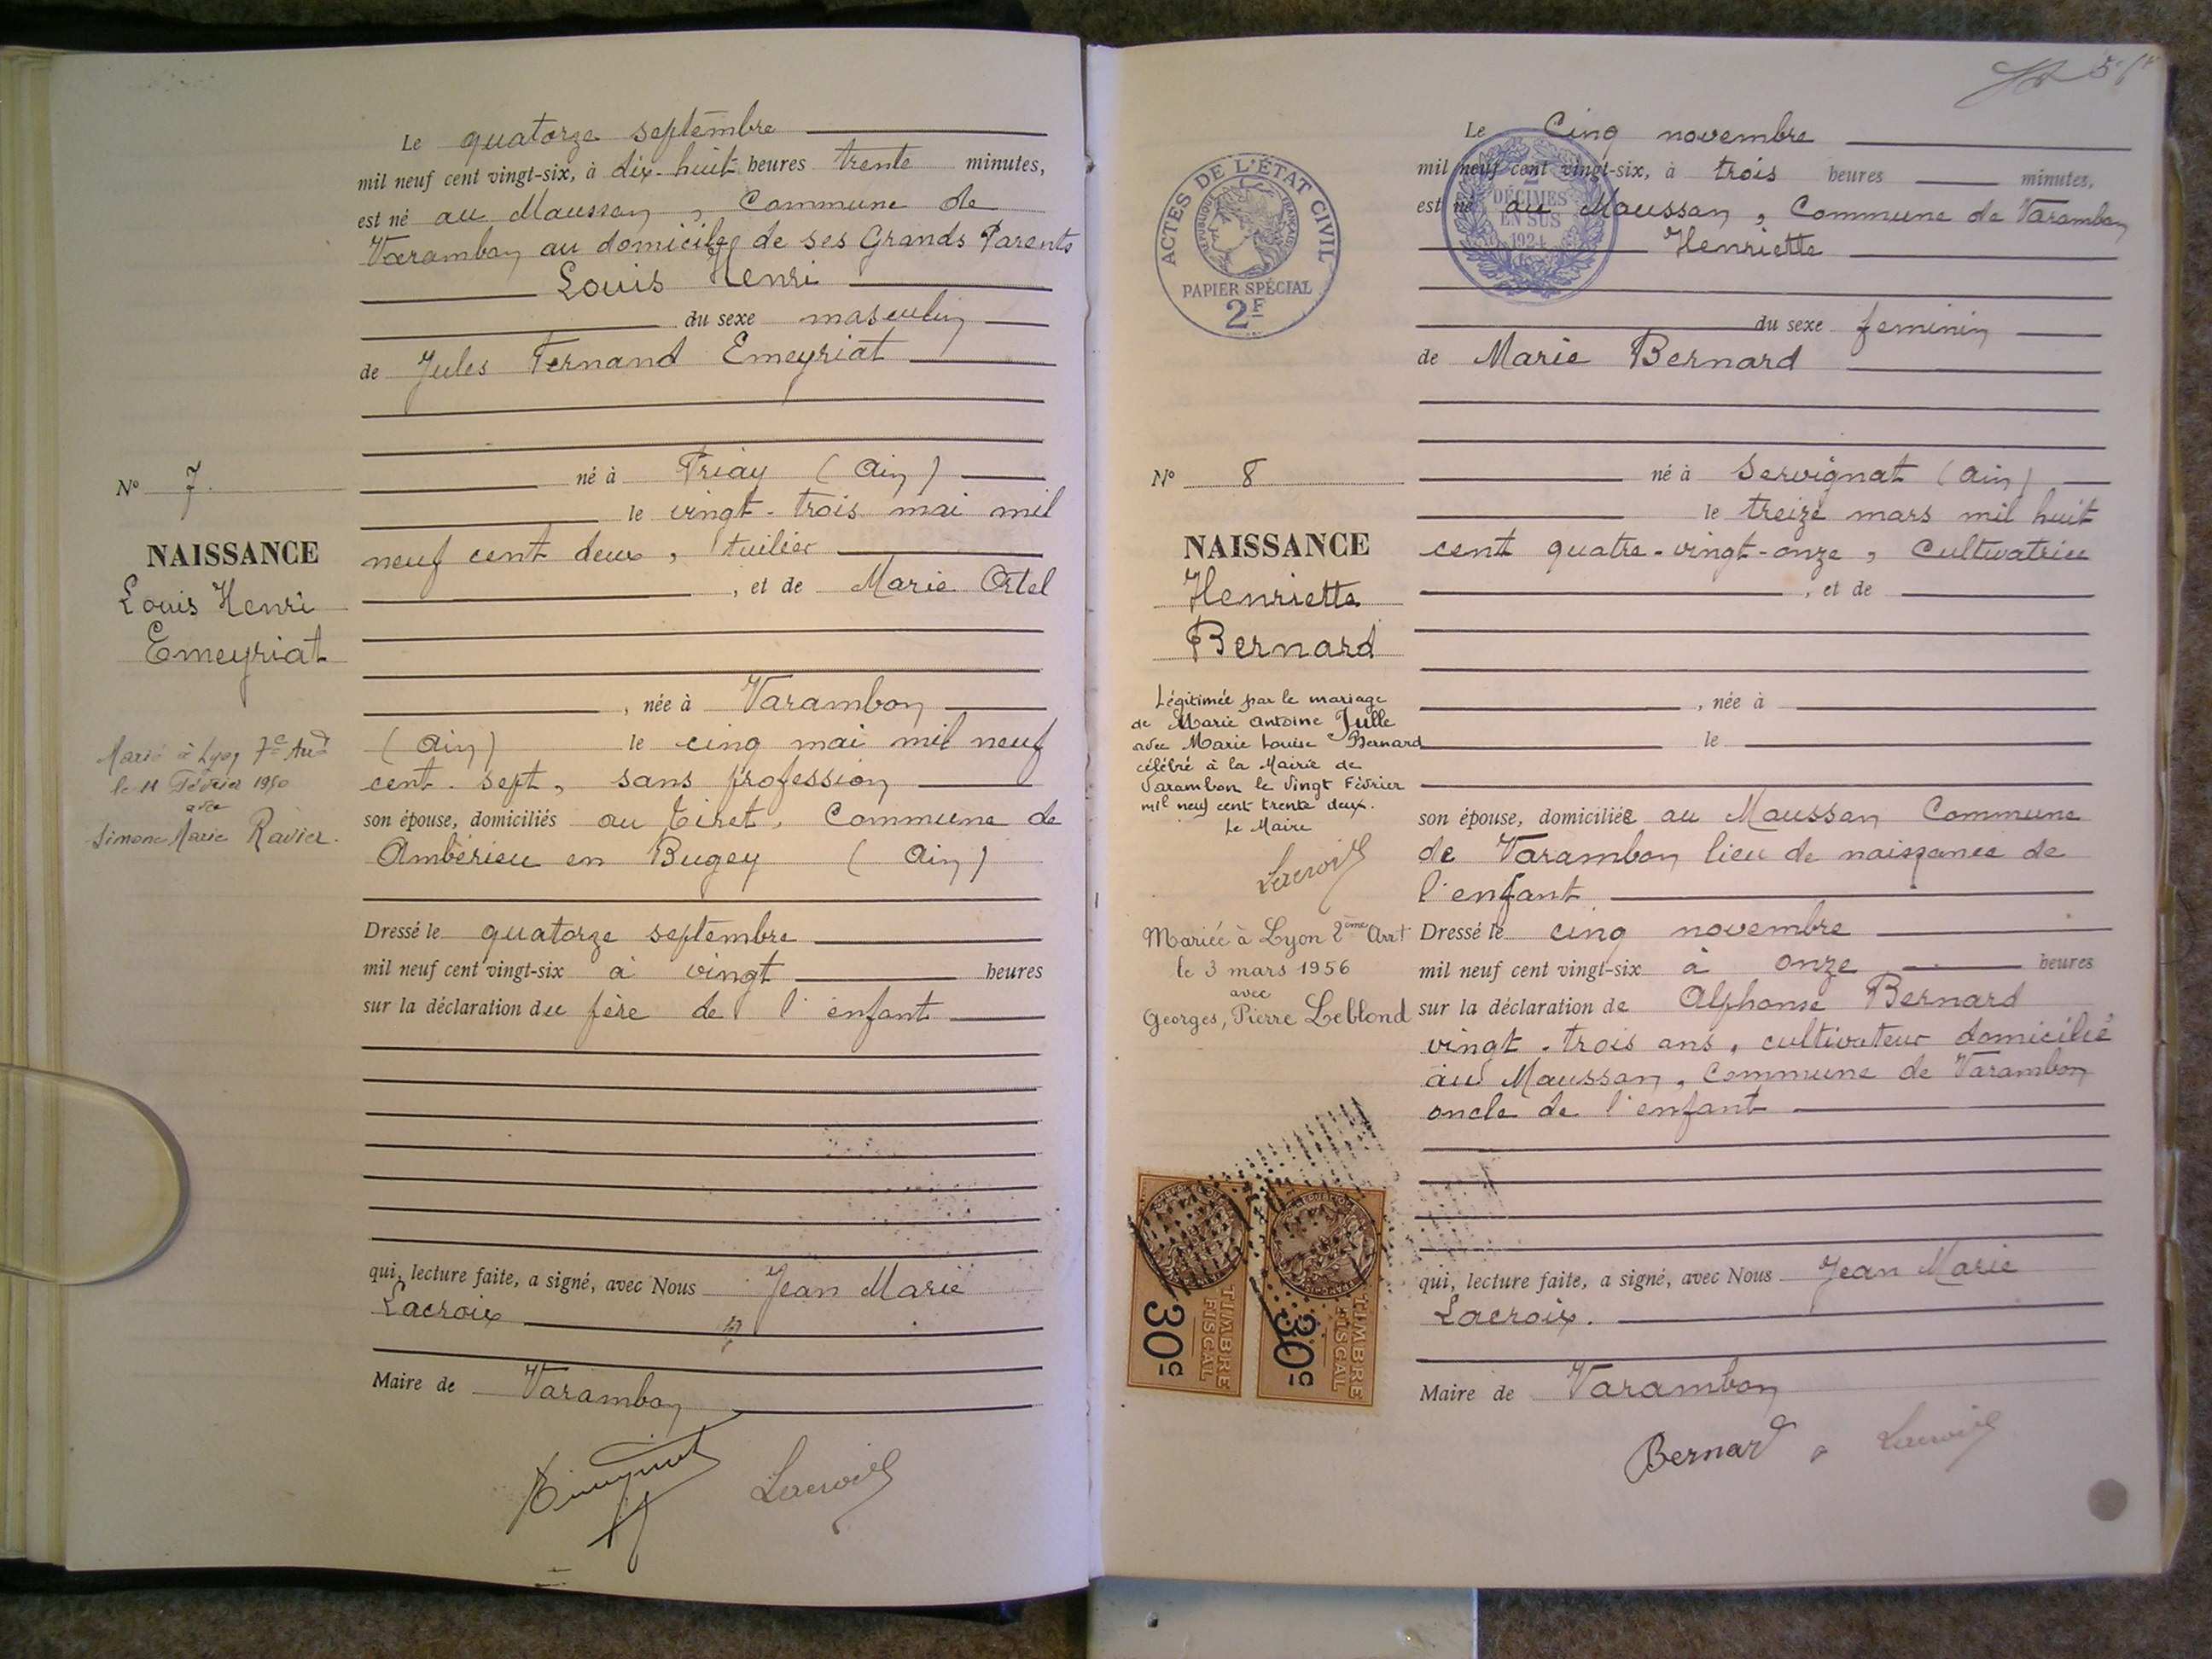 Le quatorze septembre
mil neuf cent vingt-six, à dix-huit heures trente minutes,
est né au Maussan, Commune de
Varambon au domicile de ses Grands Parents
Louis Henri
du sexe masculin
de Jules Fernand Emeyriat
né à Priay (Ain)
le vingt-trois mai mil
neuf cent deux, tuilier
, et de Marie Ortel
, née à Varambon
(Ain) le cinq mai mil neuf
cent sept, sans profession
son épouse, domiciliés au Tiret, Commune de
Ambérieu en Bugey (Ain)
Dressé le quatorze septembre
mil neuf cent vingt-six à vingt heures
sur la déclaration du père de l'enfant
qui, lecture faite, a signé, avec Nous Jean Marie
Lacroix
Maire de Varambon
Lacroix
N° 7
NAISSANCE
Louis Henri
Emeyriat
Marié à Lyon 7e Arrt
le 11 Février 1950
avec
Simone Marie Ravier.
ACTES DE L'ÉTAT CIVIL
RÉPUBLIQUE FRANÇAISE
PAPIER SPÉCIAL
2F
2
DÉCIMES
EN SUS
1924
Le Cinq novembre
mil neuf cent vingt-six, à trois heures minutes,
est né au Maussan, Commune de Varambon
Henriette
du sexe feminin
de Marie Bernard
né à Servignat (Ain)
le treize mars mil huit
cent quatre-vingt-onze, Cultivatrice
, et de
, née à
le
son épouse, domiciliée au Maussan Commune
de Varambon lieu de naissance de
l'enfant
Dressé le cinq novembre
mil neuf cent vingt-six à onze heures
sur la déclaration de Alphonse Bernard
vingt-trois ans, cultivateur domicilié
au Maussan, Commune de Varambon
oncle de l'enfant
qui, lecture faite, a signé, avec Nous Jean Marie
Lacroix.
Maire de Varambon
Bernard Lacroix
N° 8
NAISSANCE
Henriette
Bernard
Légitimée par le mariage
de Marie Antoine Julle
avec Marie Louise Bernard
célébré à la Mairie de
Varambon le vingt Février
mil neuf cent trente deux.
Le Maire
Lacroix
Mariée à Lyon 2ème Arrt
le 3 mars 1956
avec
Georges, Pierre Leblond
TIMBRE
FISCAL
30c
TIMBRE
FISCAL
30c